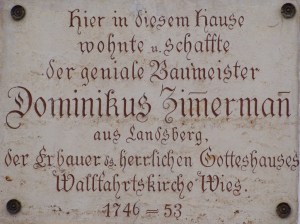 Hier in diesem Hause
wohnte u. schaffte
der geniale Baumeister
Dominikus Zim̅erman̅
aus Landsberg.
der Erbauer ds. herrlichen Gotteshauses
Wallfahrtskirche Wies.
1746=53